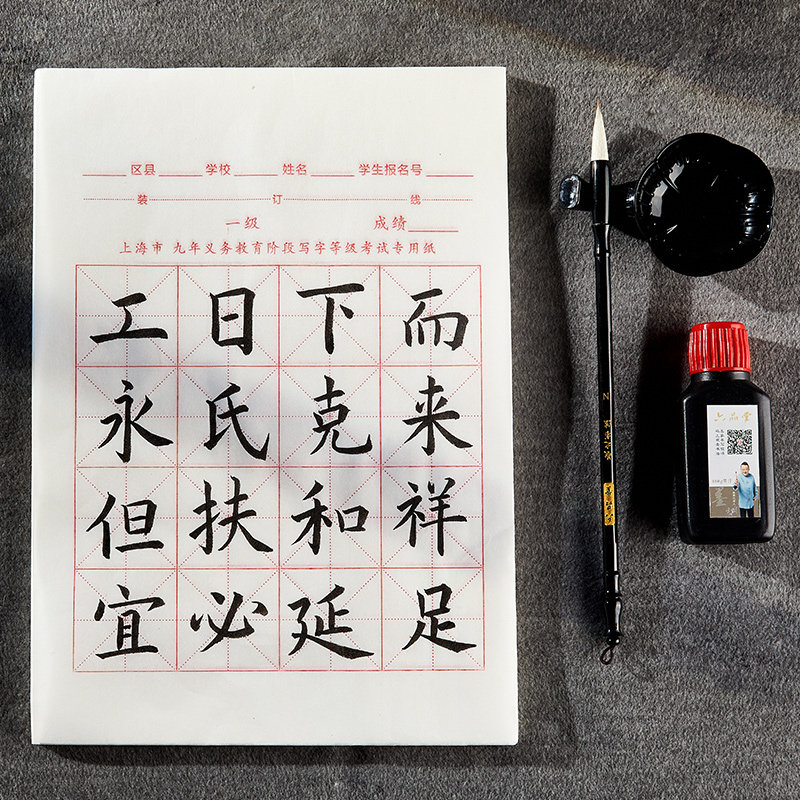 区县______ 学校______ 姓名______ 学生报名号______
装 订 线
一级 成绩______
上海市 九年义务教育阶段写字等级考试专用纸
工日下而
永氏克来
但扶和祥
宜必延足
六品堂